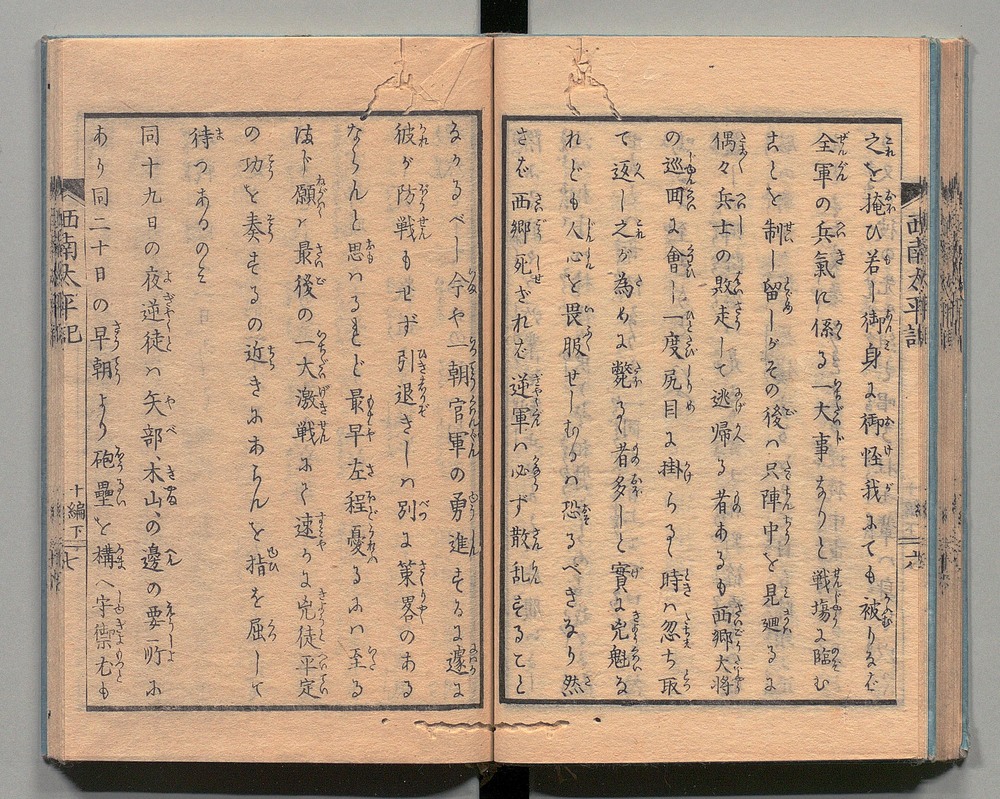 西南太平記
之を掩ひ若し御身に御怪我にても被りなば
全軍の兵氣に係る一大事なりと戦場に臨む
ことを制し留しがその後ハ只陣中を見廻るに
偶々兵士の敗走して逃帰る者あるも西郷大将
の巡回に會し一度尻目に掛らるゝ時ハ忽ち取
て返し之が為めに斃るゝ者多しと實に兇魁な
れども人心を畏服せしむるハ恐るべきなり然
さバ西郷死ざれバ逆軍ハ必ず散乱することと
十編下
六
なかるべし今や一朝官軍の勇進するに遽に
彼が防戦もせず引退きしハ別に策畧のある
ならんと思ハるゝもど最早左程憂るにハ至る
まじ願ハ最後の一大激戦にて速かに兇徒平定
の功を奏するの近きにあらんを指を屈して
待つあるのミ
同十九日の夜逆徒ハ矢部、木山、の邊の要所に
あり同二十日の早朝より砲壘を構へ守禦尤も
西南太平記
十編下
七